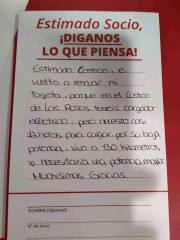 Estimado Socio,
¡DIGANOS
LO QUE PIENSA!
Estimado Costco, e
vuelto a renovar mi
tarjeta, porque en el Costco
de Las Rozas teneis cargador
eléctrico, pero necesito casi
horas para cargar, por su baja
potencia, vivo a 130 kilometros,
y necesitaria una potencia mayor
Muchisimas Gracias.
NOMBRE (Opcional)
Nº de Socio